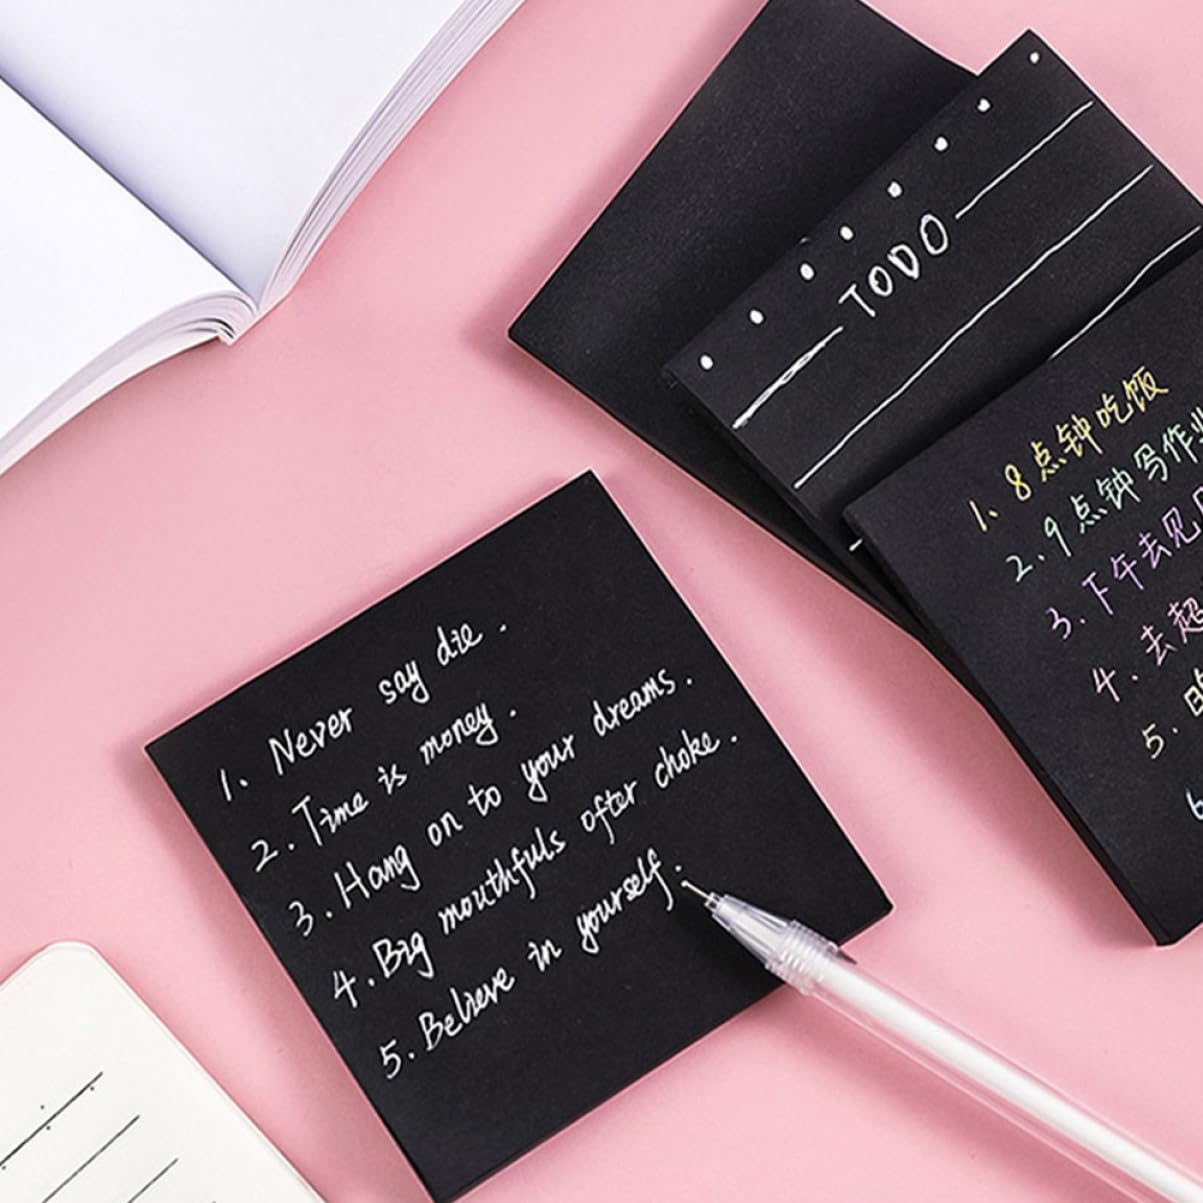 TODO
1. 8点钟吃饭
2. 9点钟写作业
3. 下午去见
4. 去超
5.
1. Never say die.
2. Time is money.
3. Hang on to your dreams.
4. Big mouthfuls ofter choke.
5. Believe in yourself.